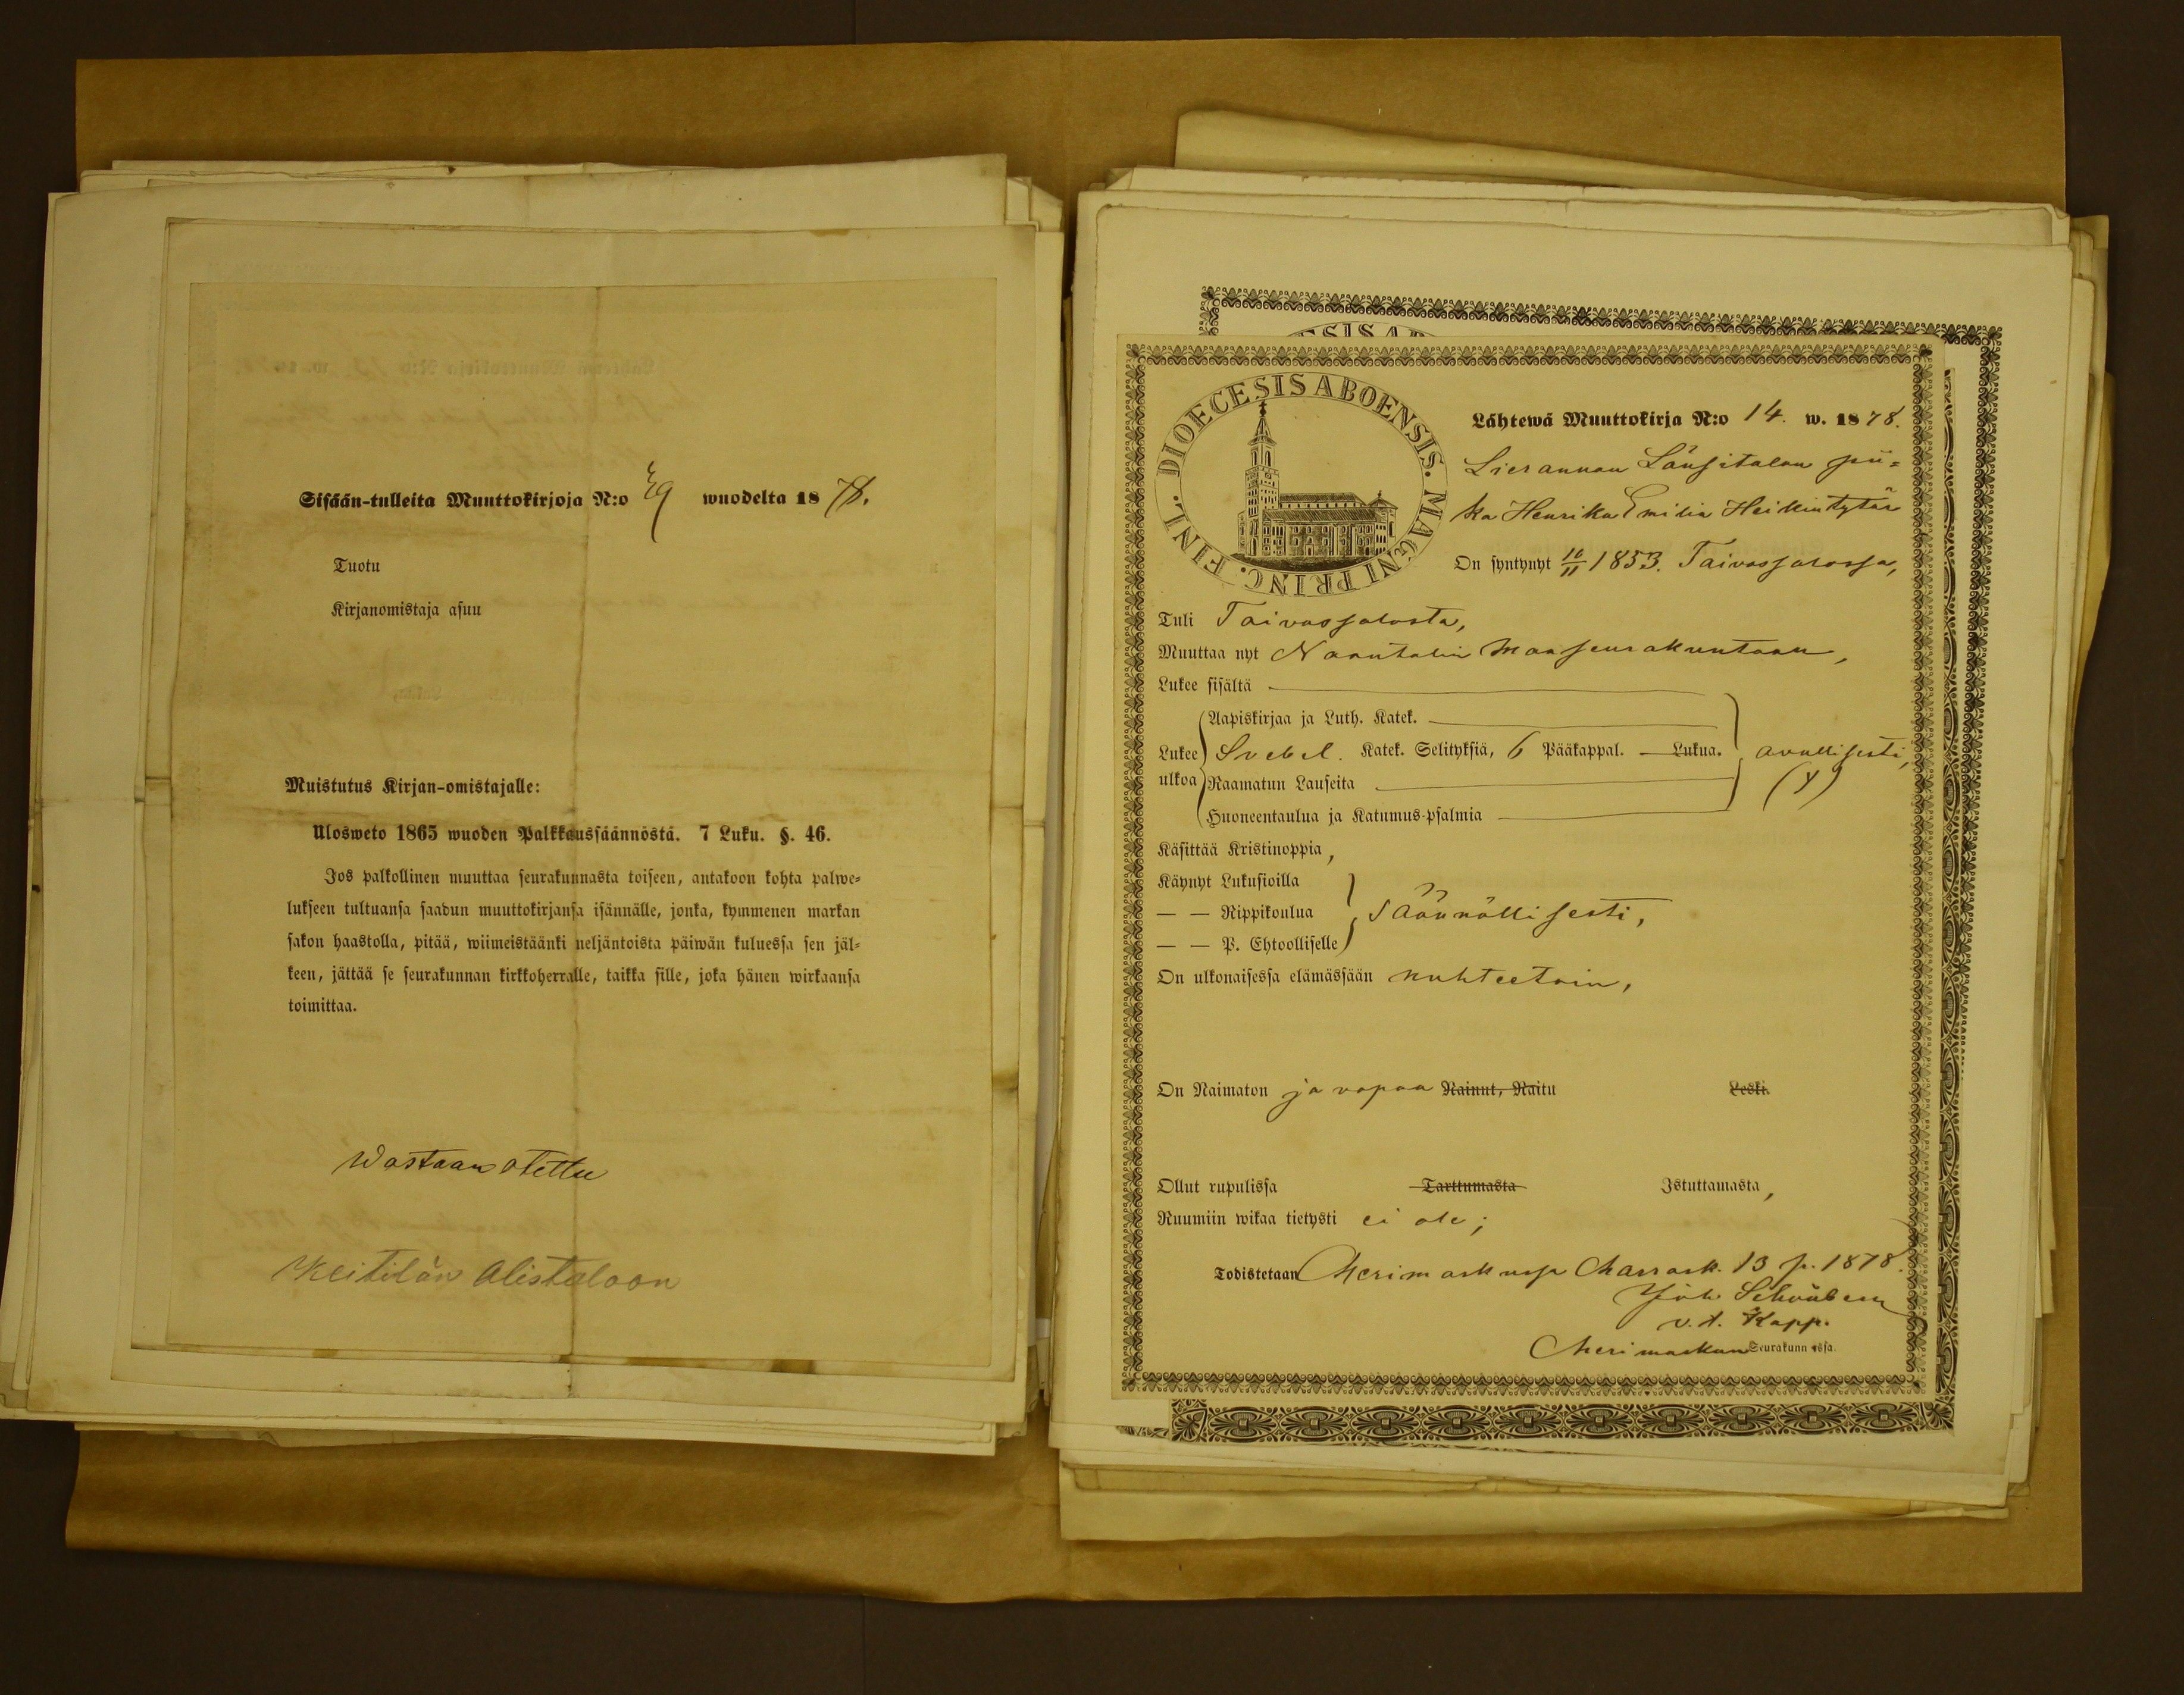 Sisään-tulleita Muuttokirjoja N:o 59 wuodelta 1878.
Tuotu
Kirjanomistaja asuu
Muistutus Kirjan-omistajalle:
Ulosweto 1865 wuoden Palkkaussäännöstä. 7 Luku. §. 46.
Jos palkollinen muuttaa seurakunnasta toiseen, antakoon kohta palwe-
lukseen tultuansa saadun muuttokirjansa isännälle, jonka, kymmenen markan
sakon haastolla, pitää, wiimeistäänki neljäntoista päiwän kuluessa sen jäl-
keen, jättää se seurakunnan kirkkoherralle, taikka sille, joka hänen wirkaansa
toimittaa.
Wastaan otettu
Keitilän Alistaloon
DIOECESIS ABOENSIS. MAGNI PRINC. FINL.
Lähtewä Muuttokirja N:o 14. w. 1878.
Lierannan Länsitalon pii-
ka Henrika Emilia Heikintytär
On syntynyt 16/11 1853. Taivassalossa,
Tuli Taivassalosta,
Muuttaa nyt Naantalin Maaseurakuntaan,
Lukee sisältä
Aapiskirjaa ja Luth. Katek.
Lukee ulkoa Svebel. Katek. Selityksiä, 6 Pääkappal. — Lukua. avullisesti,
Raamatun Lauseita (y)
Huoneentaulua ja Katumus-psalmia
Käsittää Kristinoppia,
Käynyt Lukusioilla
— — Rippikoulua säännöllisesti,
— — P. Ehtoolliselle
On ulkonaisessa elämässään nuhteetoin,
On Naimaton ja vapaa Nainut, Naitu Leski.
Ollut rupulissa Tarttumasta Istuttamasta,
Ruumiin wikaa tietysti ei ole;
Todistetaan Merimaskussa Marrask. 13 p. 1878.
v.t. Kapp.
Merimaskun Seurakunnassa.